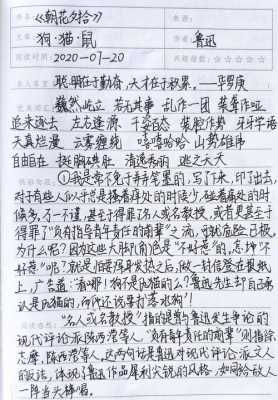 书名:《朝花夕拾》
文章:狗·猫·鼠 作者:鲁迅
阅读时间:2020-07-20
名人名言 聪明在于勤奋,天才在于积累。——华罗庚
巍然屹立 若无其事 乱作一团 装聋作哑
追来逐去 左右逢源 千姿百态 装腔作势 牙牙学语
天真烂漫 云雾缠绕 嘻嘻哈哈 山势雄伟
自由自在 挺胸碘肚 清逸秀丽 逃之夭夭
①我是常不免于弄弄笔墨的,写了下来,印了出去,
对于有些人似乎总是搔着痒处的时候少,碰着痛处的时
候多,万一不谨,甚至于得罪了名人或名教授,或者更甚至于
得罪了“负有指导青年责任的前辈”之流,可就危险已极。
为什么呢?因为这些大脚色是“不好惹”的。怎地“不
好惹”呢?就是怕要浑身发热之后,做一封信登在报纸
上,广告道:“看哪!狗不是仇猫的么?鲁迅先生却自己承
认是仇猫的,而他还说要打‘落水狗’!”
“名人或名教授”指的是曾与鲁迅发生争论的
现代评论派陈西滢等人,“负有青年责任的前辈”则指徐
志摩,陈西滢等人,这两句话是鲁迅对现代评论派文人
的反话,体现了鲁迅作品犀利尖锐的风格,如同给敌人
一阵当头棒喝。